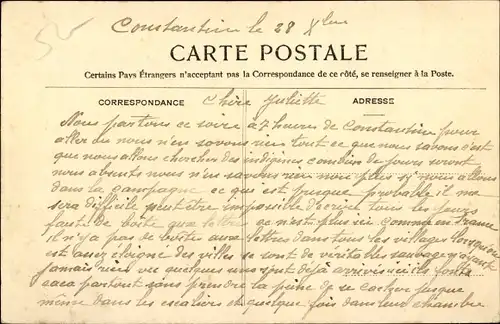 Constantine le 28 Xbre
CARTE POSTALE
Certains Pays Étrangers n'acceptant pas la Correspondance de ce côté, se renseigner à la Poste.
CORRESPONDANCE Chère Juliette ADRESSE
Nous partons ce soire à 7 heures de Constantine pour
aller ou nous n'en savons rien tout ce que nous savons c'est
que nous allons chercher des indigines combien de jours seront
nous absents nous n'en savons rien non plus si nous allons
dans la campagne ce qui est presque probable il me
sera dificile peut être impossible d'ecrire tous les jours
faute de boite aux lettres ce n'est plus ici comme en France
il n'y a pas de boites aux lettres dans tous les villages lorsqu'on
est assez éloigné des villes se sont de veritables sauvages n'ayant
jamais rien vu quelques uns sont dejà arrives ici ils font
caca partout sans prendre la peine de se cacher jusque
même dans les escaliers et quelque fois dans leur chambre